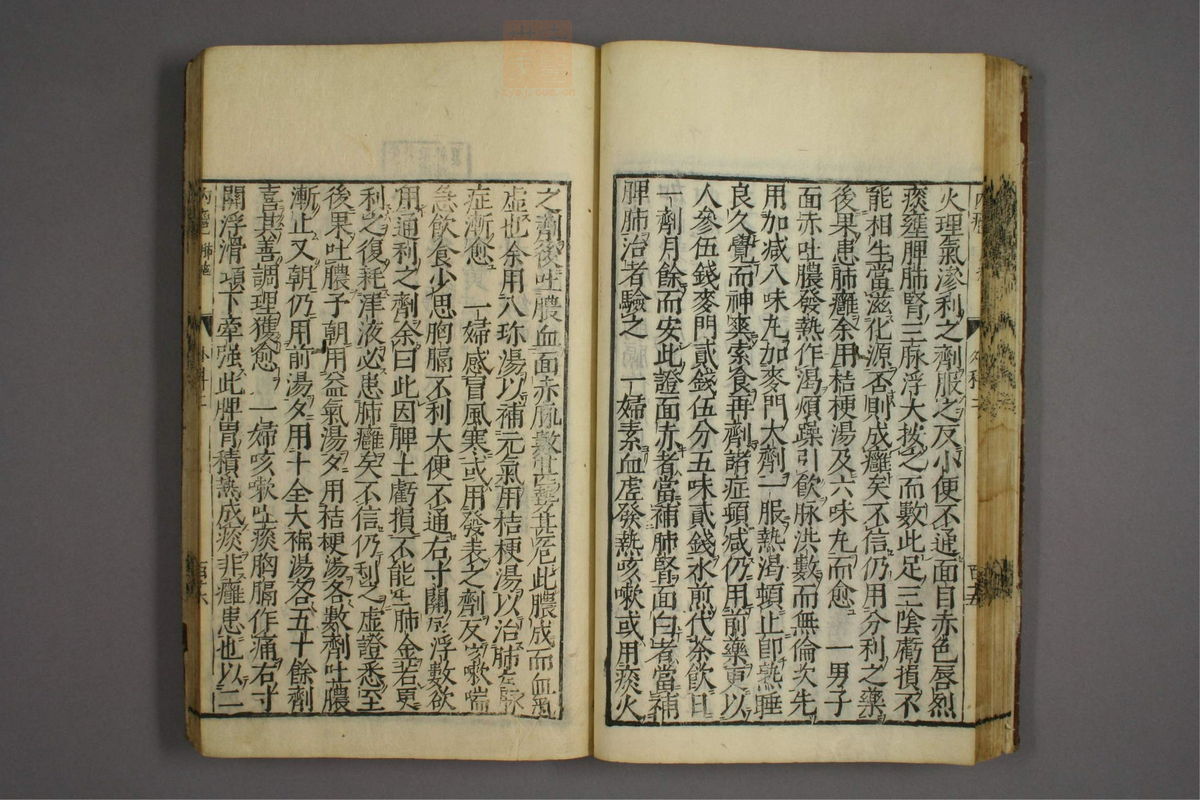 火理氣滲利之劑服之反小便不通面目赤色唇烈
痰壅脾肺腎三脉浮大按之而數此足三陰虧損不
能相生當滋化源否則成癰矣不信仍用分利之藥
後果患肺癰余用桔梗湯及六味丸而愈　一男子
面赤吐膿發熱作渴煩躁引飲脉洪數而無倫次先
用加减八味丸加麥門大劑一服熱渴頓止即熟睡
良久覺而神爽索食再劑諸症頓减仍用前藥更以
人參伍錢麥門貳錢伍分五味貳錢水煎代茶飲日
一劑月餘而安此證面赤者當補肺腎面白者當補
脾肺治者驗之　一婦素血虛發熱咳嗽或用痰火
之劑後吐膿血面赤脉數其勢甚危此膿成而血氣
虛也余用八珍湯以補元氣用桔梗湯以治肺症脉
症漸愈　一婦感冒風寒或用發表之劑反咳嗽喘
急飲食少思胸膈不利大便不通右寸關浮數欲
用通利之劑余曰此因脾土虧損不能生肺金若更
利之復耗津液必患肺癰矣不信仍利之虛證悉至
後果吐膿予朝用益氣湯夕用桔梗湯各數劑吐膿
漸止又朝仍用前湯夕用十全大補湯各五十餘劑
喜其善調理獲愈　一婦咳嗽吐痰胸膈作痛右寸
關浮滑項下牽強此脾胃積熱成痰非癰患也以二
外科二
百六
外科二
百五